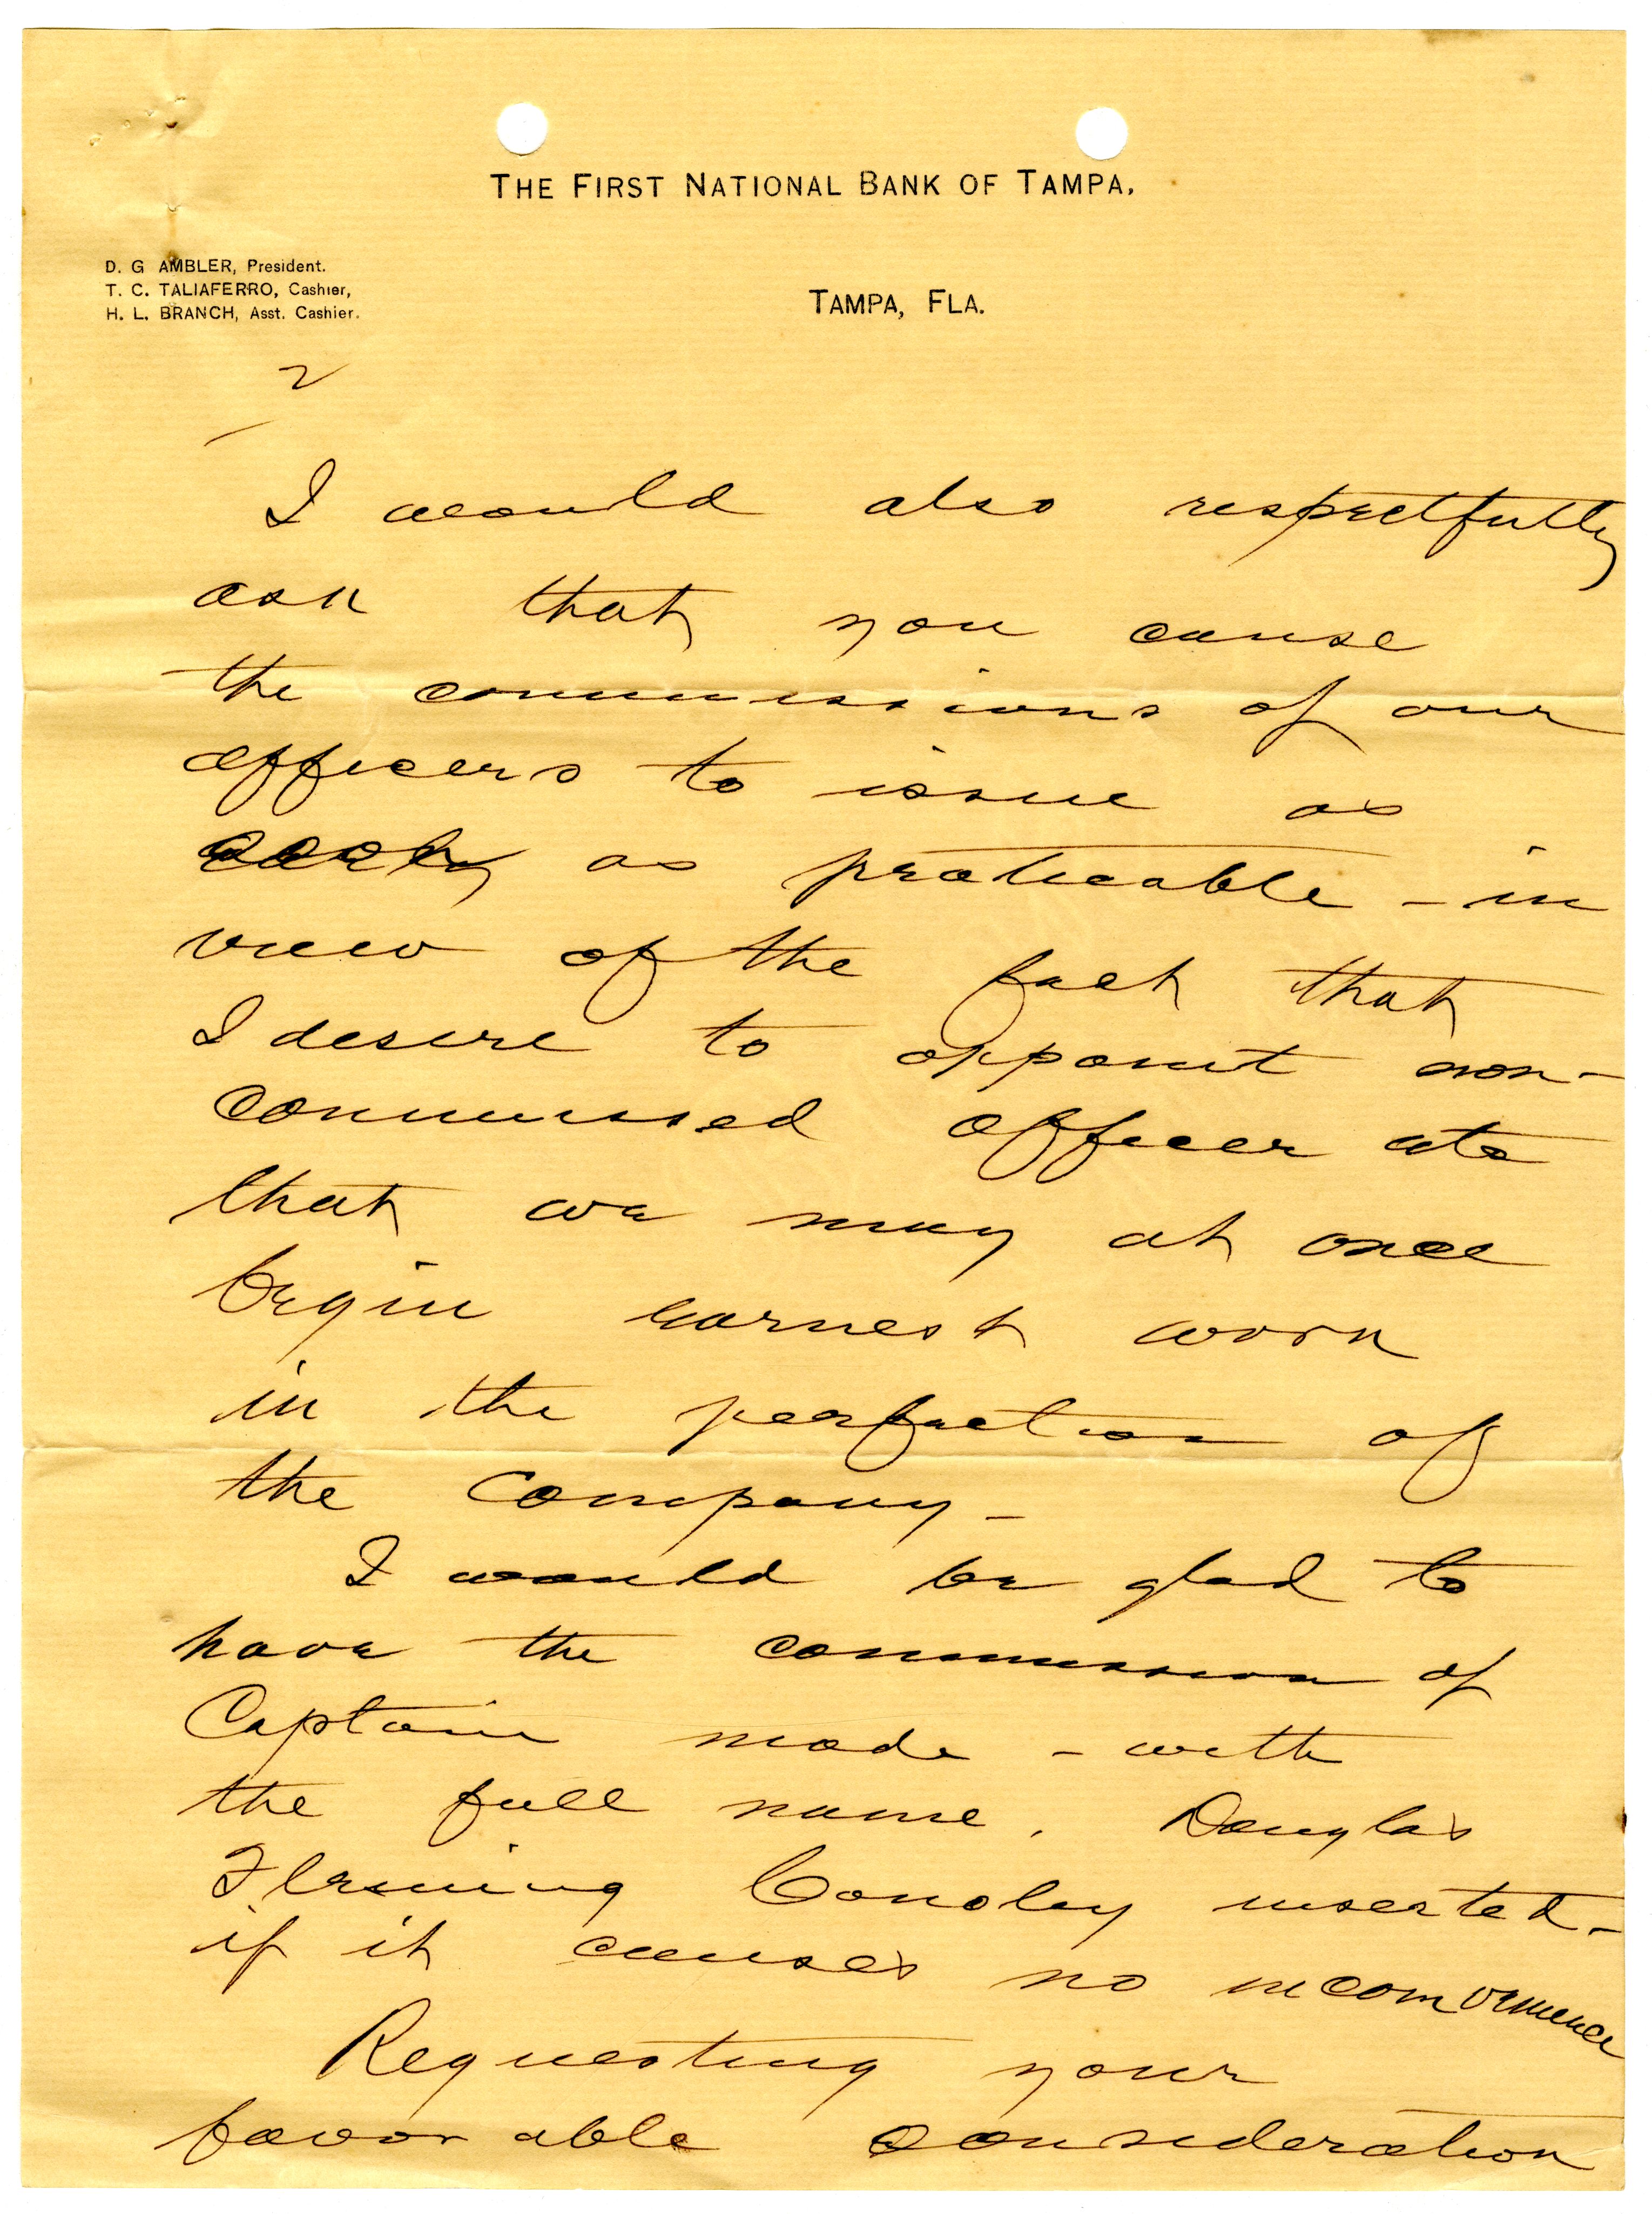 THE FIRST NATIONAL BANK OF TAMPA,
D. G AMBLER, President.
T. C. TALIAFERRO, Cashier,
H. L. BRANCH, Asst. Cashier.
TAMPA, FLA.
2
I would also respectfully
ask that you cause
the commissions of our
officers to issue as
early as praticable - in
view of the fact that
I desire to appoint non-
commissed officer etc
that we may at once
begin earnest work
in the perfection of
the Company -
I would be glad to
have the commission of
Captain made - with
the full name, Douglas
Fleming Conoley inserted -
if it causes no inconvenience
Requesting your
favorable consideration